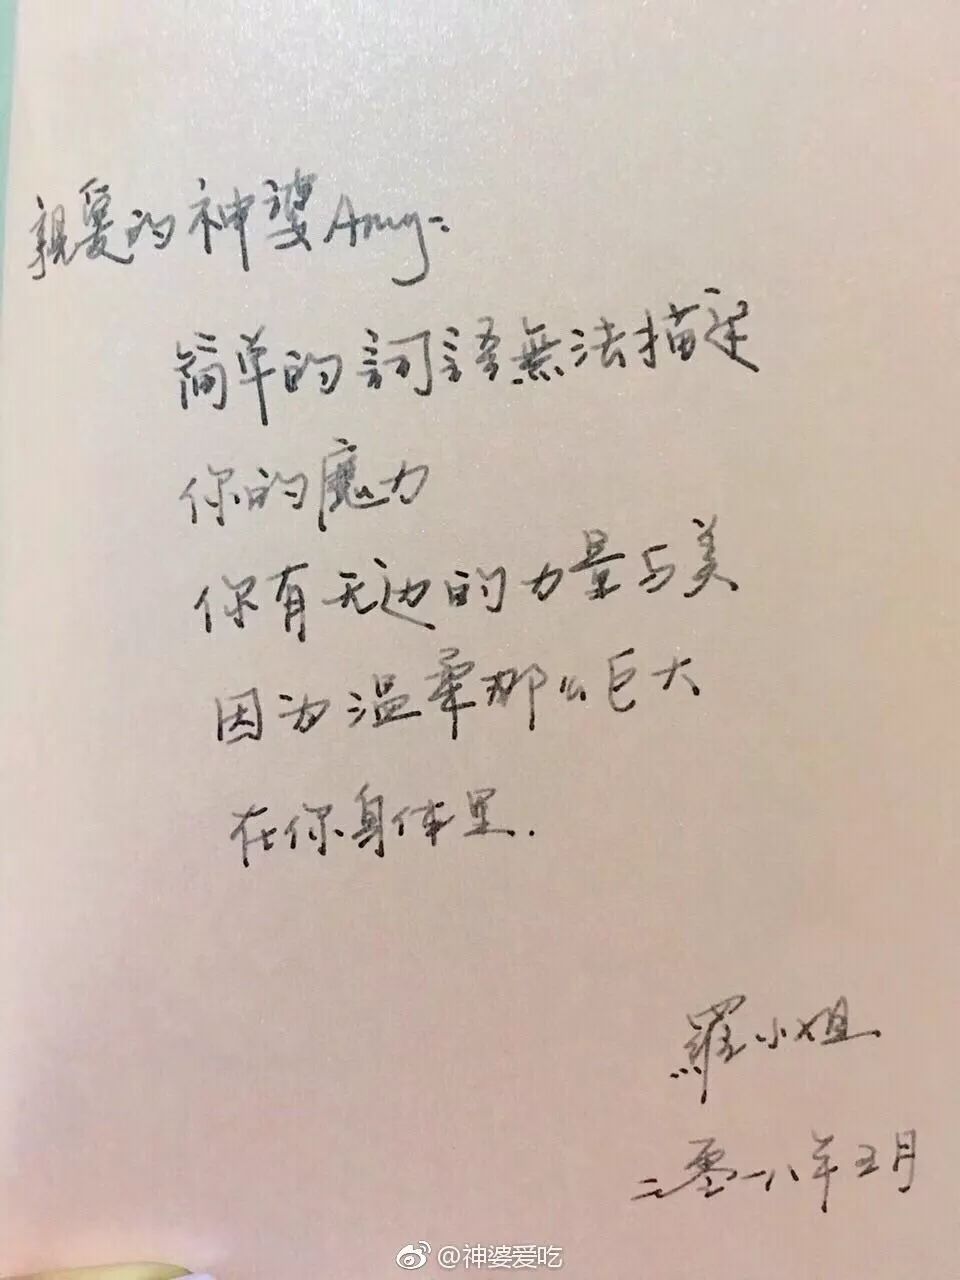 親爱的神婆Amy：
简单的詞語無法描述
你的魔力
你有无边的力量与美
因为温柔那么巨大
在你身体里.
羅小姐
二零一八年五月
@神婆爱吃